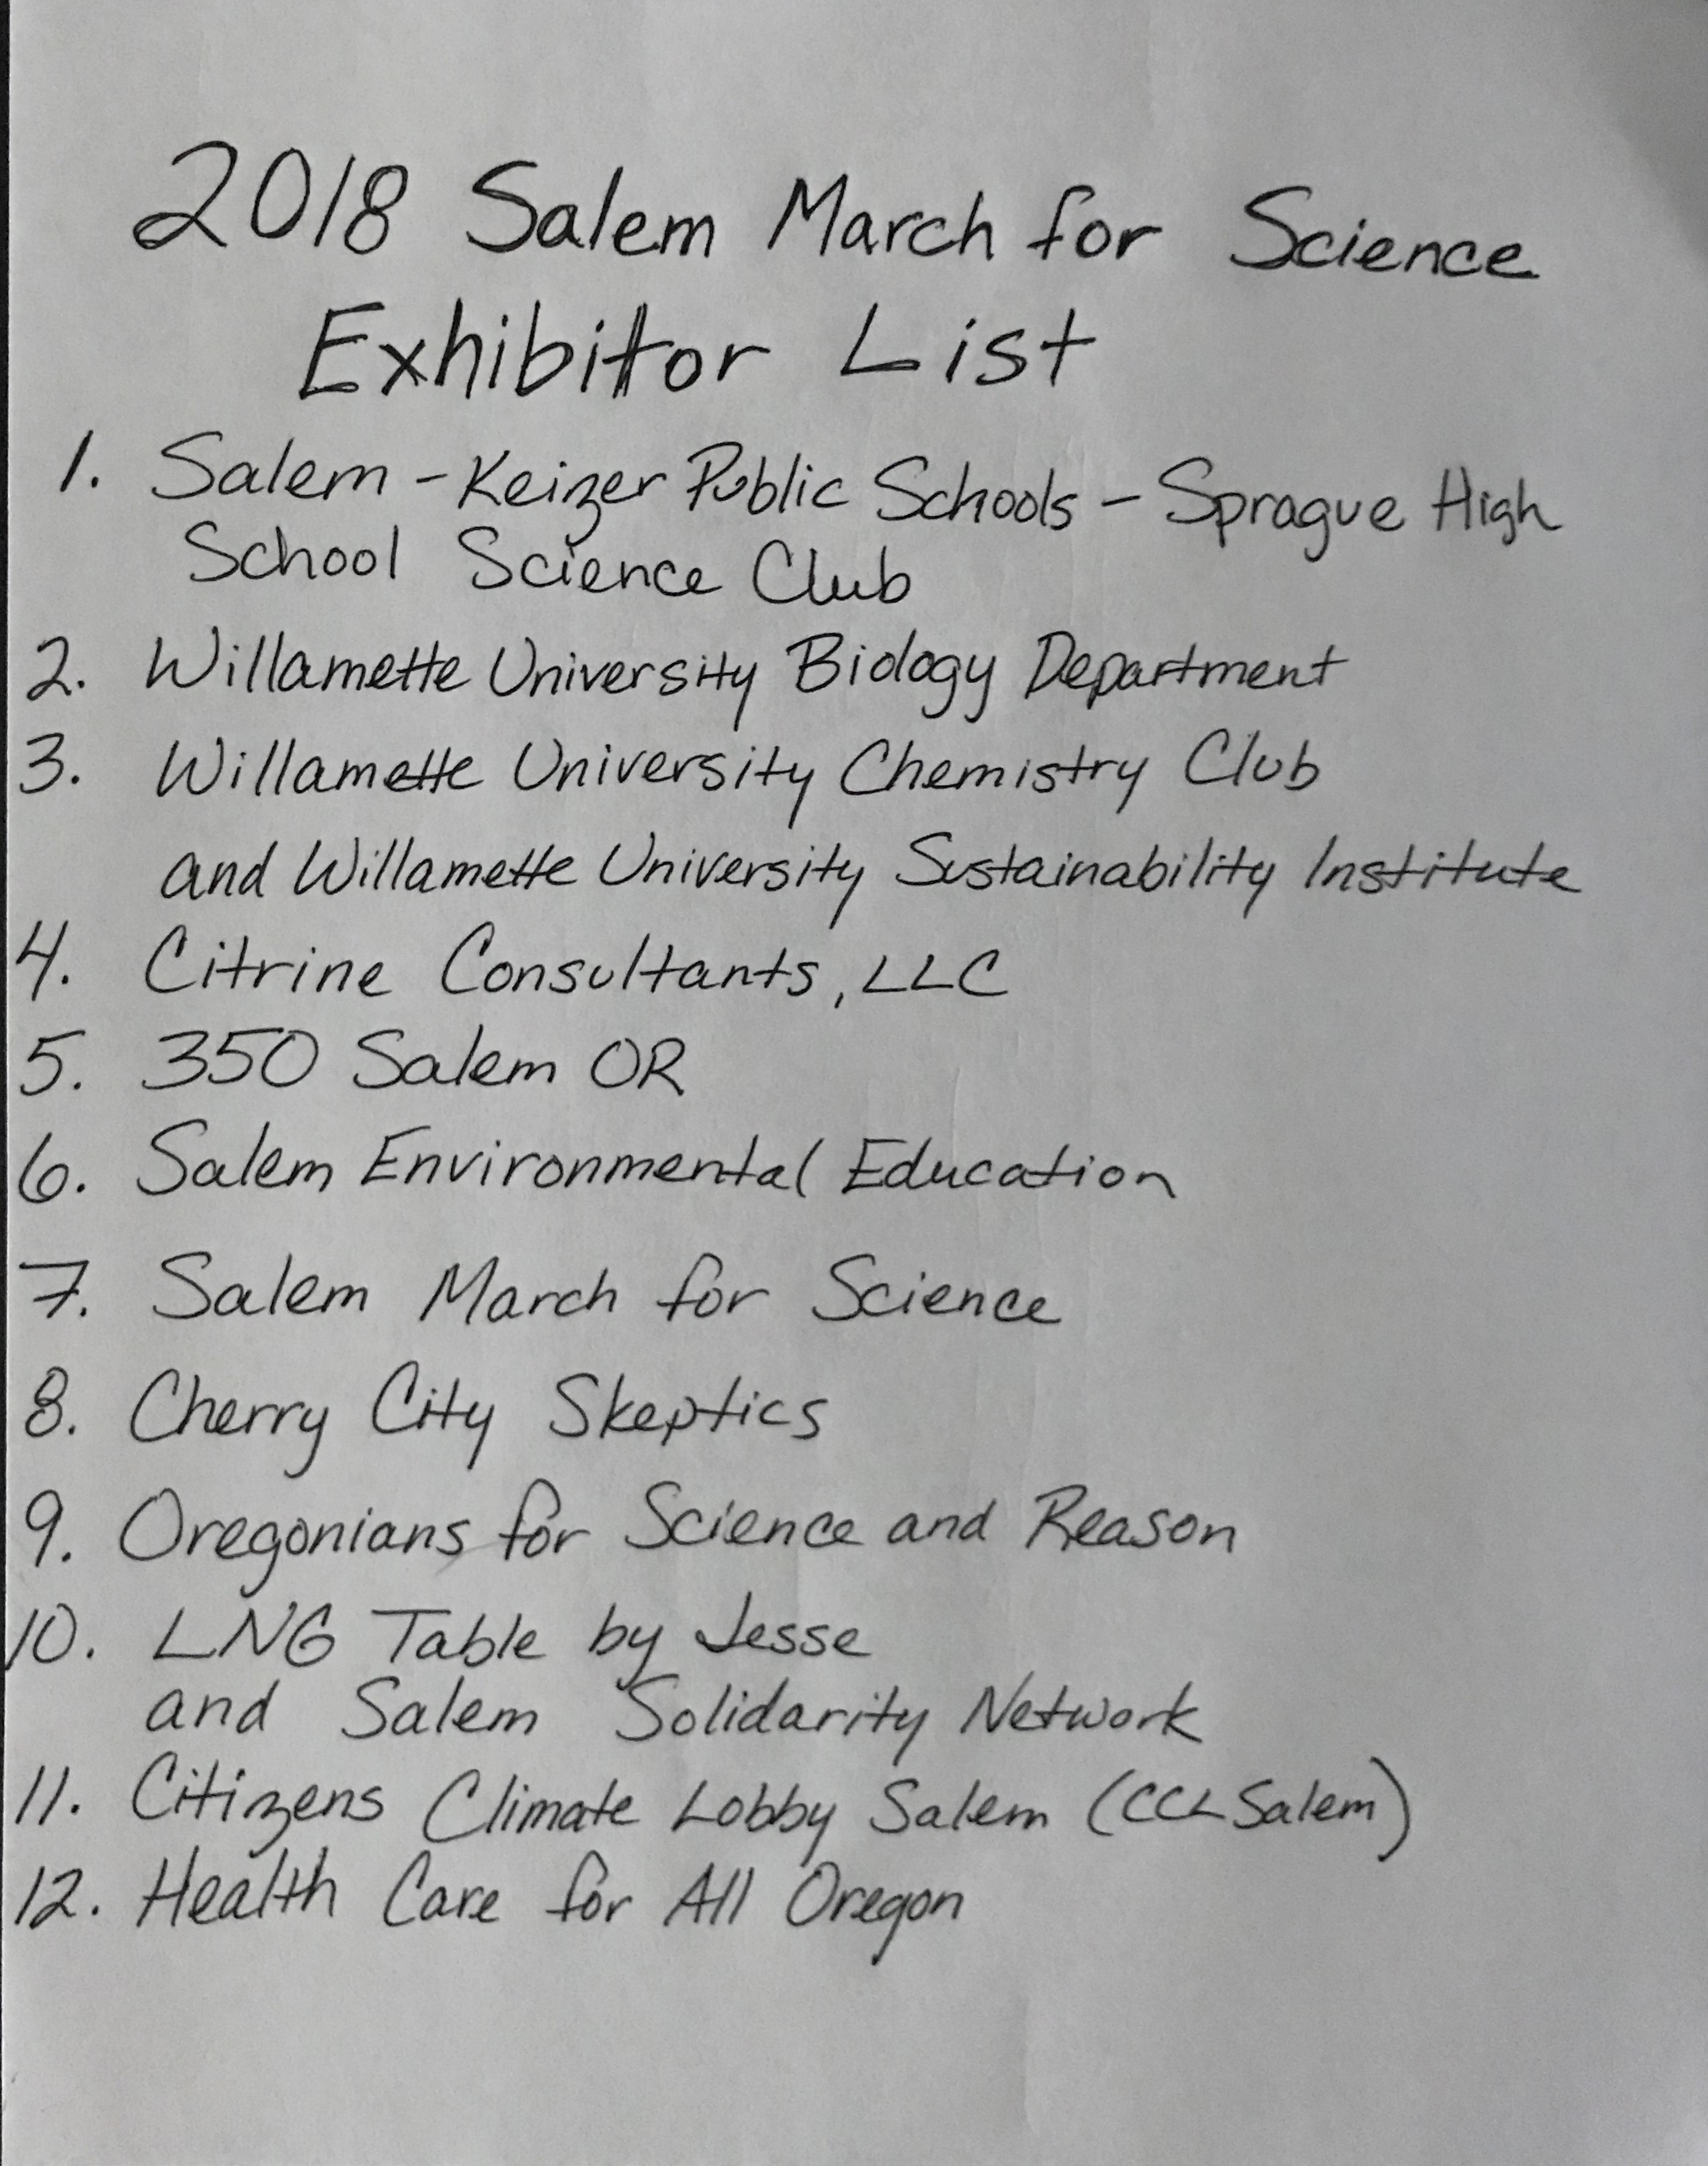 2018 Salem March for Science
Exhibitor List
1. Salem - Keizer Public Schools - Sprague High
School Science Club
2. Willamette University Biology Department
3. Willamette University Chemistry Club
and Willamette University Sustainability Institute
4. Citrine Consultants, LLC
5. 350 Salem OR
6. Salem Environmental Education
7. Salem March for Science
8. Cherry City Skeptics
9. Oregonians for Science and Reason
10. LNG Table by Jesse
and Salem Solidarity Network
11. Citizens Climate Lobby Salem (CCL Salem)
12. Health Care for All Oregon